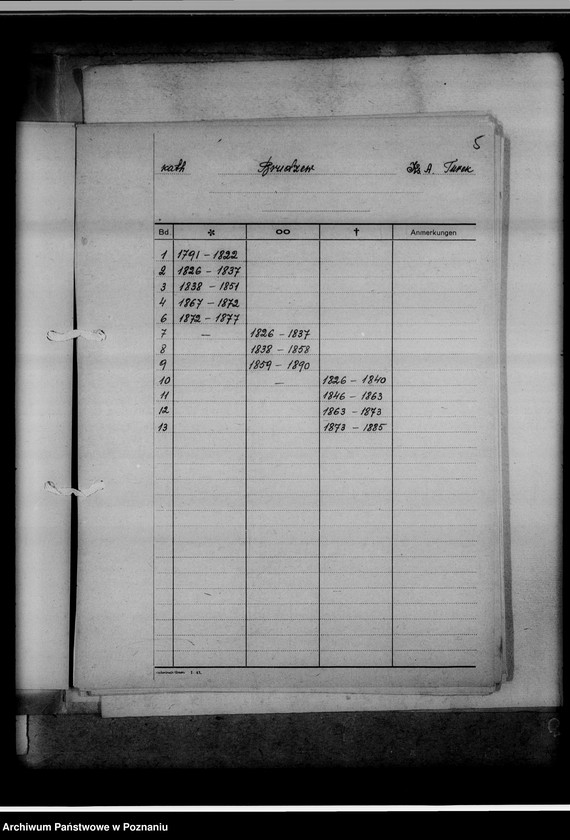 5
kath Brudzew Kr. A. Turek
Bd. * ∞ † Anmerkungen
1 1791 – 1822
2 1826 – 1837
3 1838 – 1851
4 1867 – 1872
6 1872 – 1877
7 — 1826 – 1837
8 1838 – 1858
9 1859 – 1890
10 — 1826 – 1840
11 1846 – 1863
12 1863 – 1873
13 1873 – 1885
Archiwum Państwowe w Poznaniu